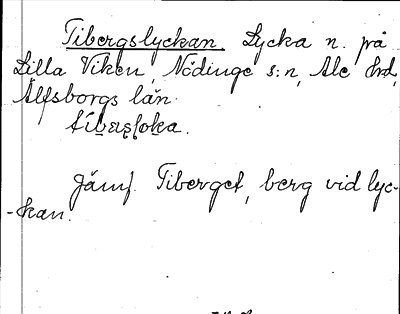 Tibergslyckan. Lycka n. på
Lilla Viken, Nödinge s:n, Ale hrd,
Älfsborgs län.
Jämf. Tiberget, berg vid lyc-
-kan.